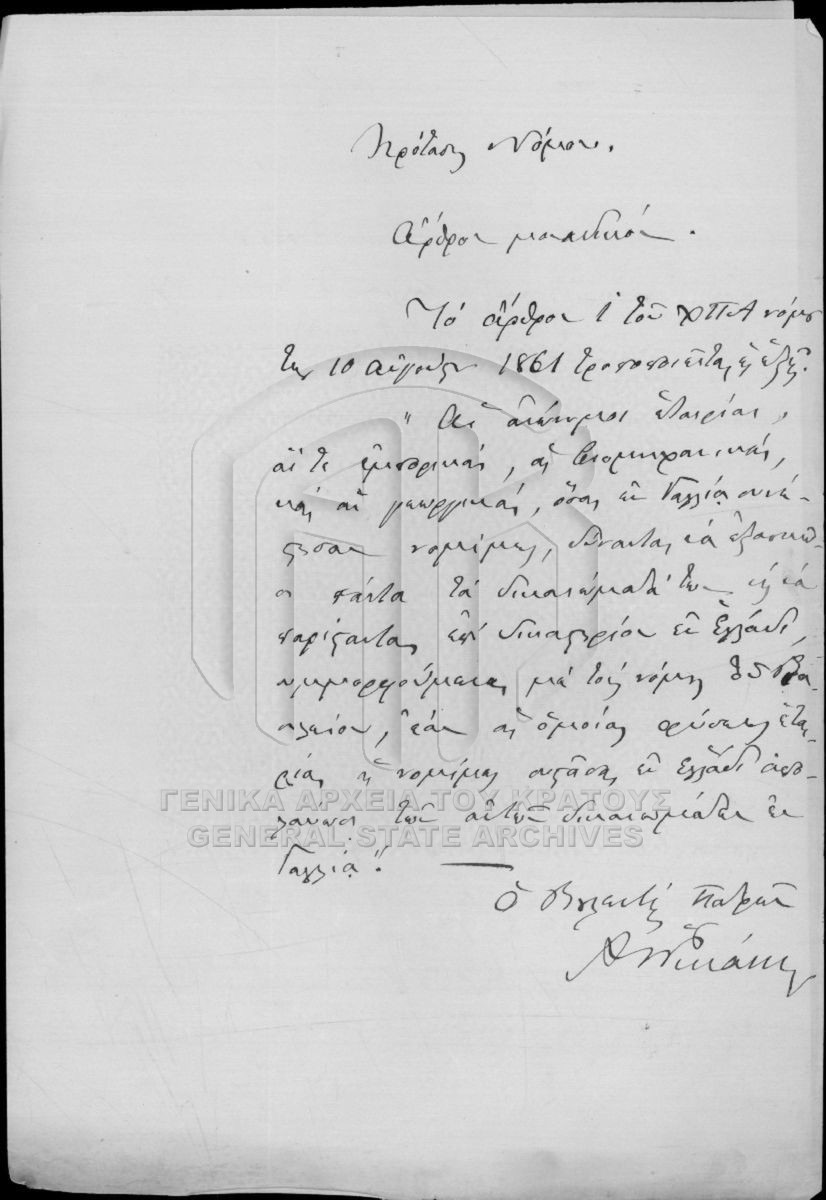 Πρότασις Νόμου.
Ἄρθρον μοναδικόν.
Τὸ ἄρθρον 1 τοῦ ΧΠΑ νόμου
τῆς 10 Αὐγούστου 1861 τροποποιεῖται ὡς ἑξῆς.
" Αἱ ἀνώνυμοι ἑταιρίαι,
αἵ τε ἐμπορικαί, αἱ βιομηχανικαί,
καὶ αἱ γεωργικαί, ὅσαι ἐν Γαλλίᾳ συνέ-
στησαν νομίμως, δύνανται νὰ ἐξασκῶ-
σι πάντα τὰ δικαιώματά των καὶ νὰ
παρίστανται ἐπὶ δικαστηρίου ἐν Ἑλλάδι,
συμμορφούμεναι μὲ τοὺς νόμους τοῦ Βα-
σιλείου, ἐὰν αἱ ὁμοίας φύσεως ἑται-
ρίαι νομίμως συστᾶσαι ἐν Ἑλλάδι ἀπο-
λαύωσι τῶν αὐτῶν δικαιωμάτων ἐν
Γαλλίᾳ".
ΓΕΝΙΚΑ ΑΡΧΕΙΑ ΤΟΥ ΚΡΑΤΟΥΣ
GENERAL STATE ARCHIVES
Ὁ Βουλευτὴς Πατρῶν